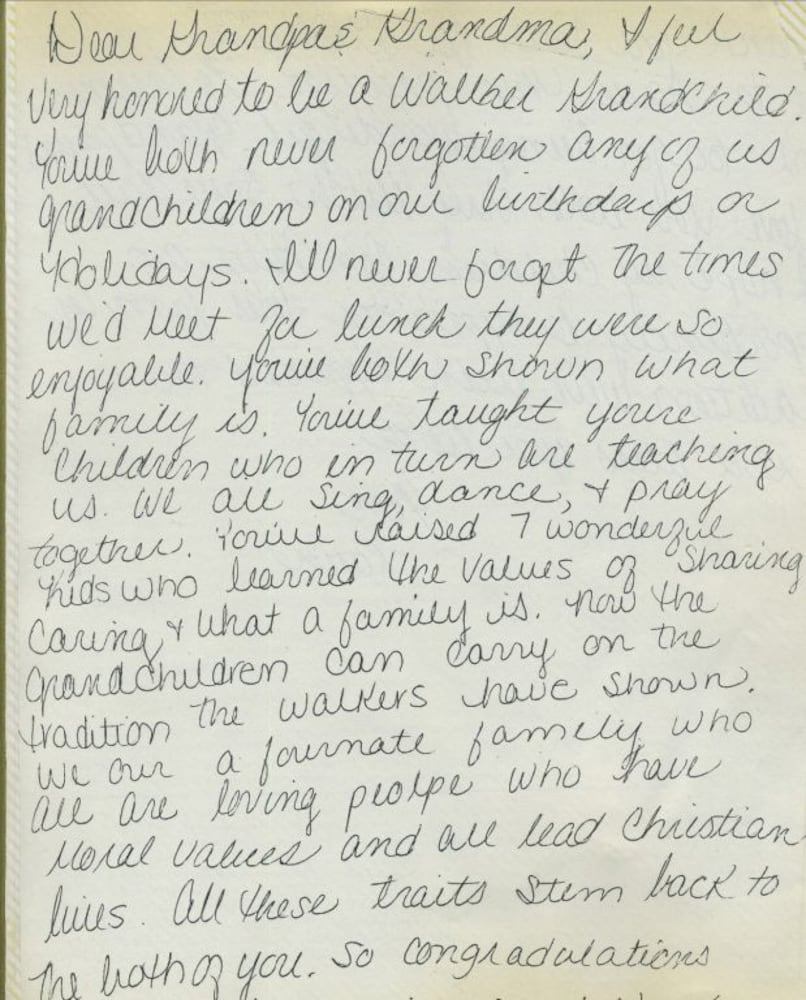 Dear Grandpa & Grandma, I feel
Very honored to be a Walker Grandchild.
You've both never forgotten any of us
grandchildren on our birthdays or
Holidays. I'll never forget the times
we'd meet for lunch they were so
enjoyable. You've both shown what
family is. You've taught youre
Children who in turn are teaching
us. We all sing, dance, & pray
together. You've raised 7 wonderful
kids who learned the values of Sharing
Caring & what a family is. Now the
Grandchildren can carry on the
tradition the Walkers have shown.
We our a fournate family who
all are loving peolpe who have
Moral values and all lead Christian
lives. All these traits Stem back to
the both of you. So congradulations